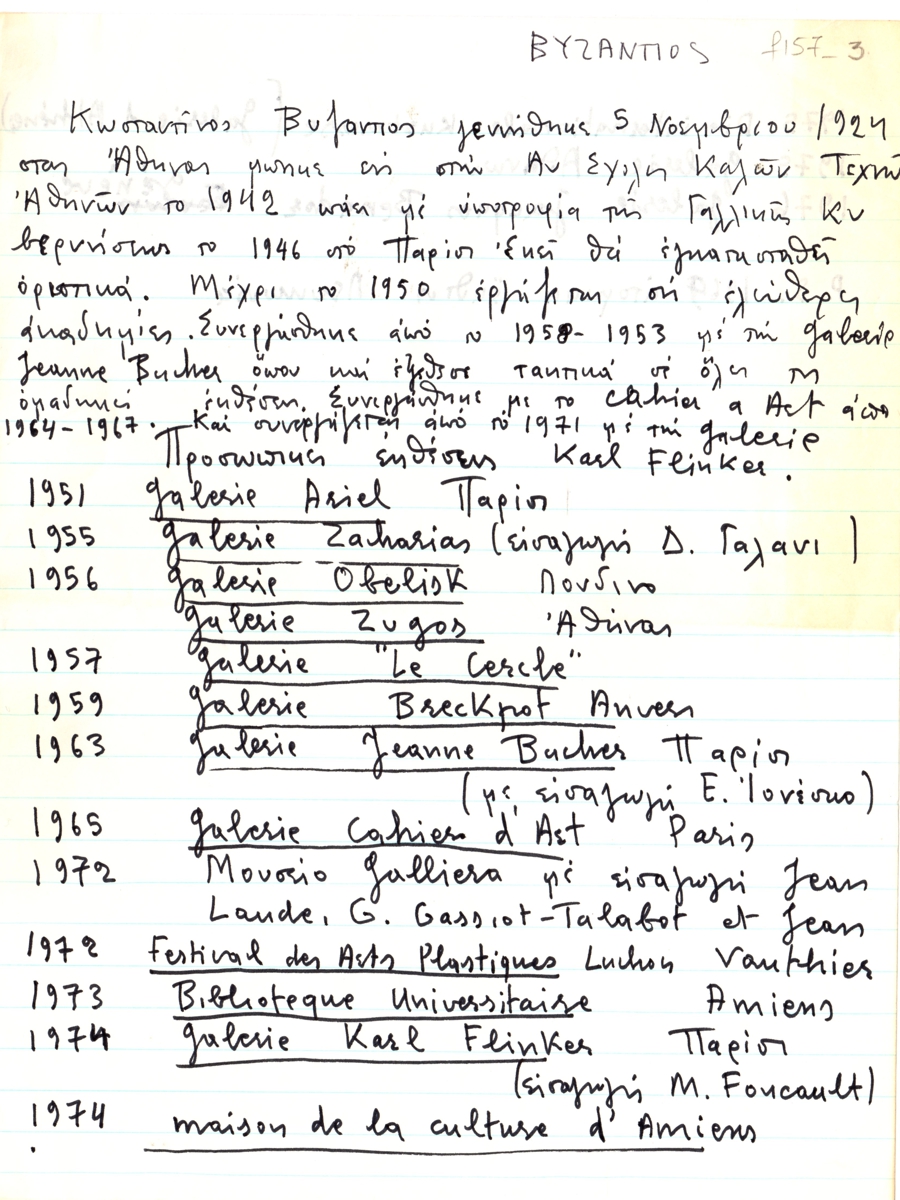 ΒΥΖΑΝΤΙΟΣ f157_3
Κωσταντίνος Βυζαντιος γεννήθηκε 5 Νοεμβριου 1924
στην Ἀθήνα φοιτησε εις στήν Αν Σχολη Καλῶν Τεχνῶν
Ἀθηνῶν το 1942 πάει μέ ὑποτροφία τῆς Γαλλικῆς Κυ
βερνήσεως το 1946 στό Παρίσι Ἐκεῖ θά ἐγκατασταθεῖ
ὁριστικά. Μέχρι το 1950 ἐργάζεται στή ἐλεύθερες
ἀκαδημίες. Συνεργάσθηκε ἀπό το 1950 - 1953 μέ τήν Galerie
Jeanne Bucher ὅπου καί ἐξέθεσε τακτικά σέ ὅλες τις
ὁμαδικές ἐκθέσεις. Συνεργάσθηκε με το Cahier a Art ἀπο
1964 - 1967. Και συνεργάζεται ἀπό το 1971 μέ τήν galerie
Προσωπικες ἐκθέσεις Karl Flinker.
1951 Galerie Ariel Παρίσι
1955 Galerie Zacharias (εἰσαγωγή Δ. Γαλανι)
1956 Galerie Obelisk Λονδίνο
Galerie Zugos Ἀθήνας
1957 Galerie "Le Cercle"
1959 Galerie Breckpot Anvers
1963 Galerie Jeanne Bucher Παρίσι
(μέ εἰσαγωγή Ε. Ἰονέσκο)
1965 Galerie Cahiers d'Art Paris
1972 Μουσείο Galliera μέ εἰσαγωγή Jean
Laude, G. Gassiot-Talabot et Jean
1972 Festival des Arts Plastiques Luchon Vauthier
1973 Bibliotèque Universitaire Amiens
1974 Galerie Karl Flinker Παρίσι
(εἰσαγωγή M. Foucault)
1974 maison de la culture d'Amiens